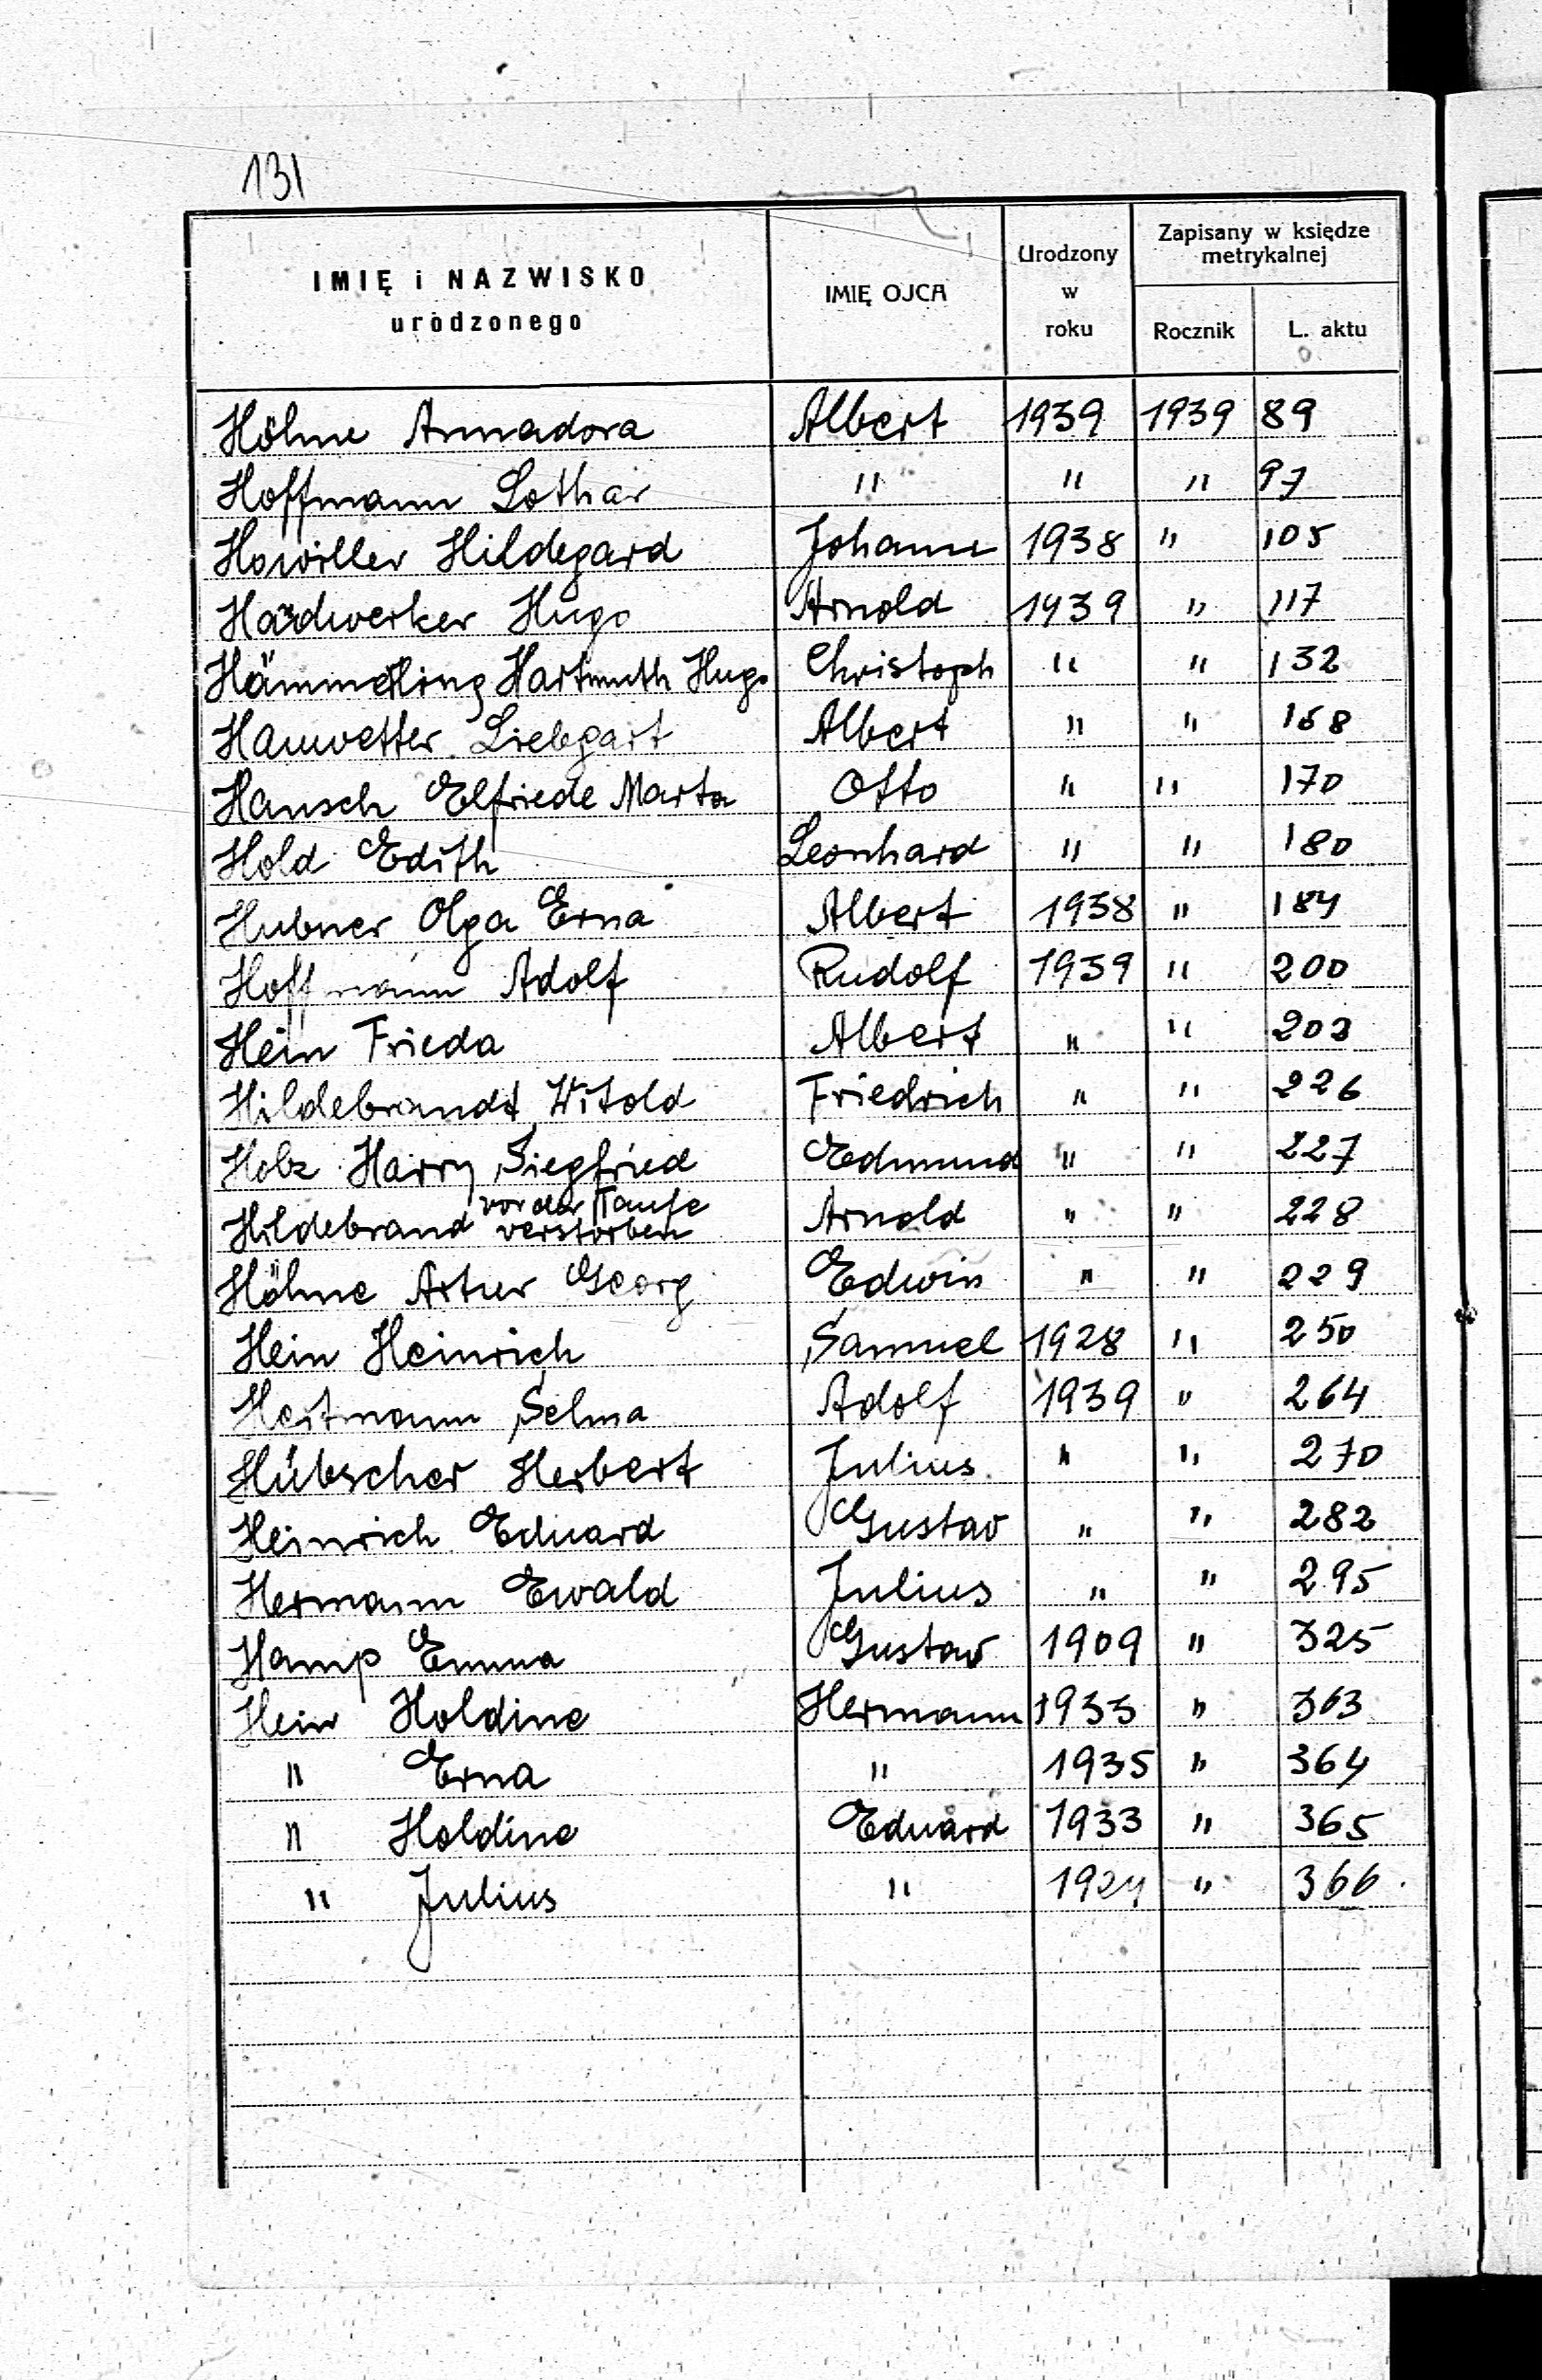 131
IMIĘ i NAZWISKO urodzonego | IMIĘ OJCA | Urodzony w roku | Zapisany w księdze metrykalnej
Rocznik | L. aktu
Höhne Annadora | Albert | 1939 | 1939 | 89
Hoffmann Lothar | " | " | " | 97
Howiller Hildegard | Johann | 1938 | " | 105
Hadwerker Hugo | Arnold | 1939 | " | 117
Hämmerling Hartmuth Hugo | Christoph | " | " | 132
Hauwetter Liebgart | Albert | " | " | 168
Hansch Elfriede Marta | Otto | " | " | 170
Hold Edith | Leonhard | " | " | 180
Hubner Olga Erna | Albert | 1938 | " | 184
Hoffmann Adolf | Rudolf | 1939 | " | 200
Hein Frieda | Albert | " | " | 203
Hildebrandt Witold | Friedrich | " | " | 226
Holz Harry Siegfried | Edmund | " | " | 227
Hildebrand vor der Taufe verstorben | Arnold | " | " | 228
Höhne Artur Georg | Edwin | " | " | 229
Hein Heinrich | Samuel | 1928 | " | 250
Hertmann Selma | Adolf | 1939 | " | 264
Hübscher Herbert | Julius | " | " | 270
Heinrich Eduard | Gustav | " | " | 282
Hermann Ewald | Julius | " | " | 295
Hamp Emma | Gustav | 1909 | " | 325
Hein Holdine | Hermann | 1933 | " | 363
" Erna | " | 1935 | " | 364
" Holdine | Eduard | 1933 | " | 365
" Julius | " | 1924 | " | 366